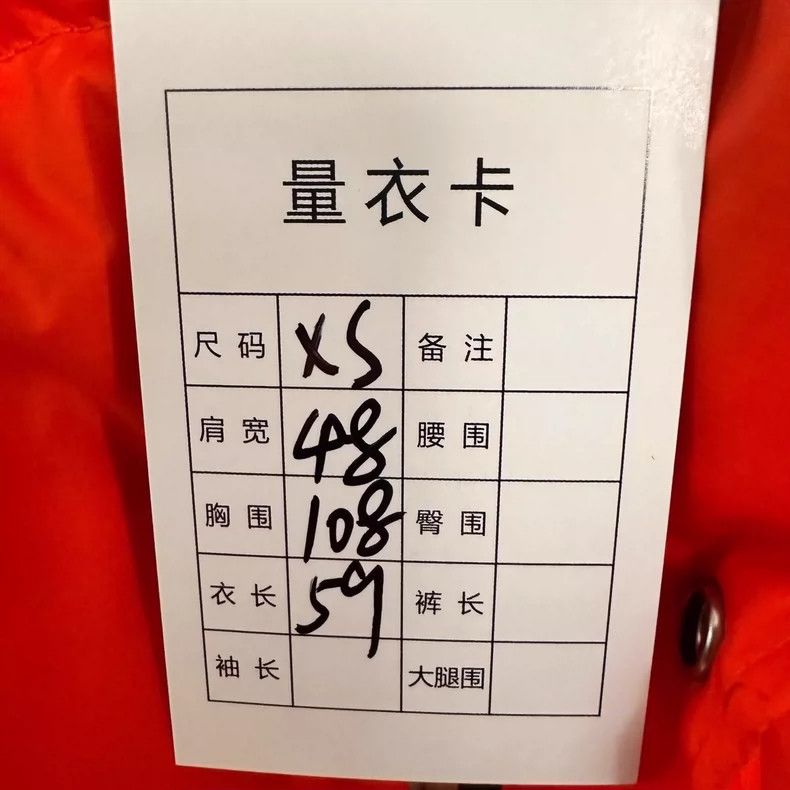 量衣卡
尺码 XS 备注
肩宽 48 腰围
胸围 108 臀围
衣长 59 裤长
袖长 大腿围